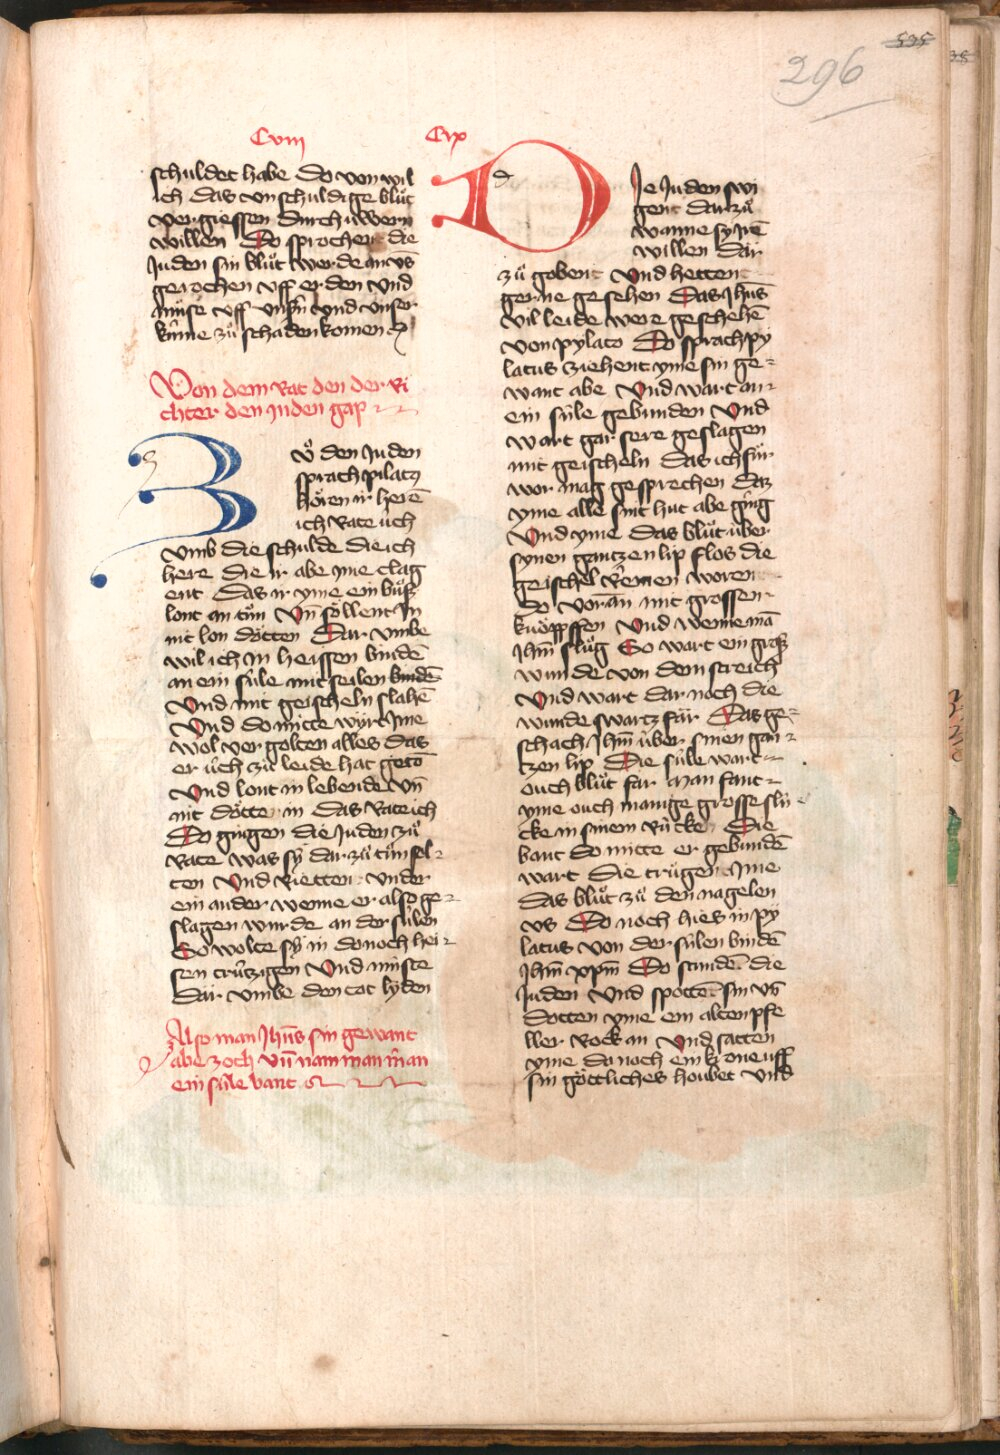 535
296
Cviij
schuldet habe Do von wil
ich das vnschuldige blůt
vergiessen durch uwern
willen Do sprochent die
Juden sin blůt werde an vns̄
gerochen vff erden vnd
můse vff vnß vnd vnser
kinne zů schaden komen
Von dem Rat den der Ri
chter den Juden gap
Zů den Juden
sprach pilatus
hören ir herē
ich Rate uch
vmb die schulde die ich
here die ir abe yme clag
ent Das ir yme ein bůß
lont an tůn Vn̄ sollent In
nit lon dötten Dar vmbe
wil ich In heissen bindē
an ein sule mit seilen bindē
Vnd mit geischeln slahē
Vnd do mitte wirt Ime
wol vergolten alles das
er ůch zů leide hat getō
Vnd lont in lebende vn̄
nit dötte in Das Rate ich
Do gingen die Juden zů
Rate was sÿ dar zů tůn sol
ten Vnd Rietten vnder
ein ander wenne er also ge
slagen wurde an der sulen
So wolte sÿ in donoch hei
sen crůtzigen Vnd můste
Dar vmbe den tot lyden
Also man Jhūs sin gewant
abe zoch vn̄ nam man in an
ein sule bant
Cix
Die Juden swi
gent dar zů
wanne sy Irē
willen dar
zů gobent Vnd hetten
gerne gesehen Das Jhūs
vil leide were geschehē
von pylato Do sprach py
latus ziehent yme sin ge
want abe Vnd wart an
ein sule gebunden Vnd
wart gar sere geslagen
mit geischeln Das ich fůr
wor mag gesprechen Das
yme alle sint hut abe ging
Vnd yme das blůt uber
synen gantzen lip flos die
geischel Riemen woren
do voran mit grossen
knöpffen Vnd wenne mā
Jhm̄ slůg So wart ein gross
wunde von dem streich
Vnd wart dar noch die
wunde swartz far Das ge
schach Jhm̄ über sinen gan
tzen lip Die sule wart
ouch blůt far Man fant
yme ouch manige grosse slů
cke in sinem Rücke Die
bant do mitte er gebundē
wart die trůgen Ime
das blůt zů den nagelen
vs Do noch hies in py
latus von der sulen bindē
Jhm̄ xpm̄ Do stundē die
Juden Vnd spottē sin Vn̄
dotten yme ein alten pfe
ller Rock an Vnd satten
yme do noch ein krone uff
sin göttliches houbet Vnd